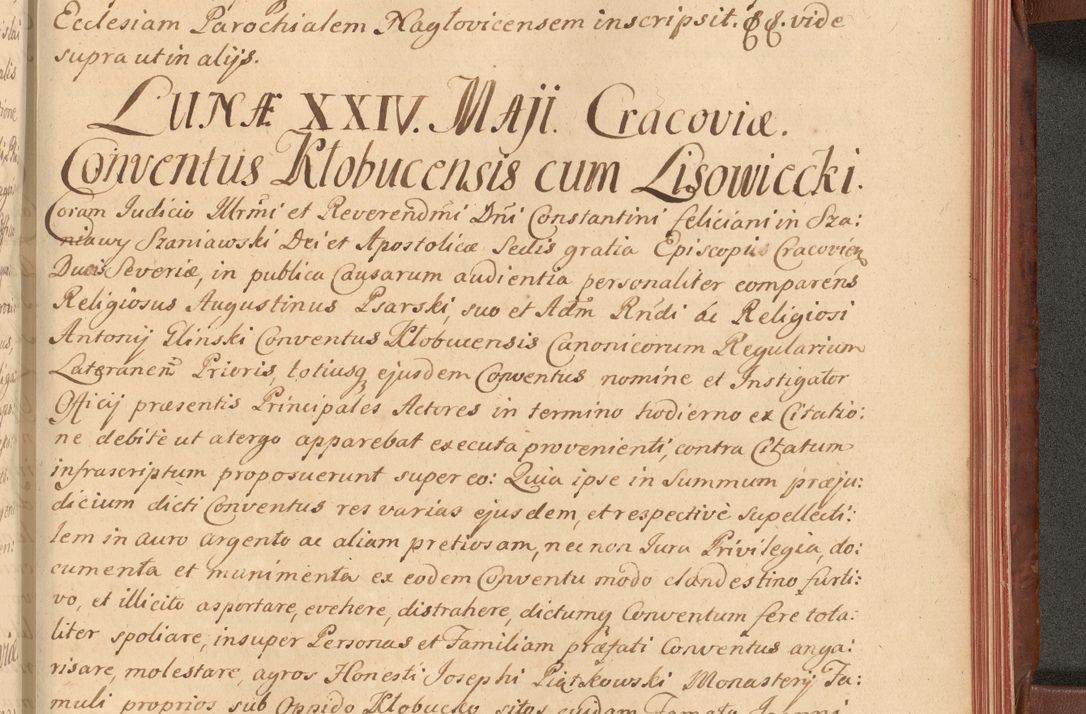 Ecclesiam Parochialem Nagłovicensem inscripsit. &&. vide
supra ut in alijs.
LUNÆ XXIV. MAJI. Cracoviæ.
Conventus Kłobucensis cum Lisowiecki.
Coram Judicio Illrmi et Reverendmi Dni Constantini feliciani in Sza:
niawy Szaniawski Dei et Apostolicæ Sedis gratia Episcopi Cracovien
Ducis Severiæ, in publica Causarum audientia personaliter comparens
Religiosus Augustinus Psarski, suo et Adm Rndi ac Religiosi
Antonij Glinski Conventus Kłobucensis Canonicorum Regularium
Lateranen Prioris, totiusq ejusdem Conventus nomine et Instigator
Officij præsentis Principales Actores in termino hodierno ex Citatio:
ne debite ut a tergo apparebat executa provenienti, contra Citatum
infrascriptum proposuerunt super eo: Quia ipse in Summum præju:
dicium dicti Conventus res varias ejusdem, et respectivè supellecti:
lem in auro argento ac aliam pretiosam, nec non Jura Privilegia, do:
cumenta et munimenta ex eodem Conventu modo clandestino furti:
vo, et illicito asportare, evehere, distrahere, dictumq Conventum fere tota:
liter spoliare, insuper Personas et Familiam præfati Conventus anga:
risare, molestare, agros Honesti Josephi Piątkowski Monasterij Fa:
muli proprios sub Oppido Kłobucko sitos cuidam Famato Joanni